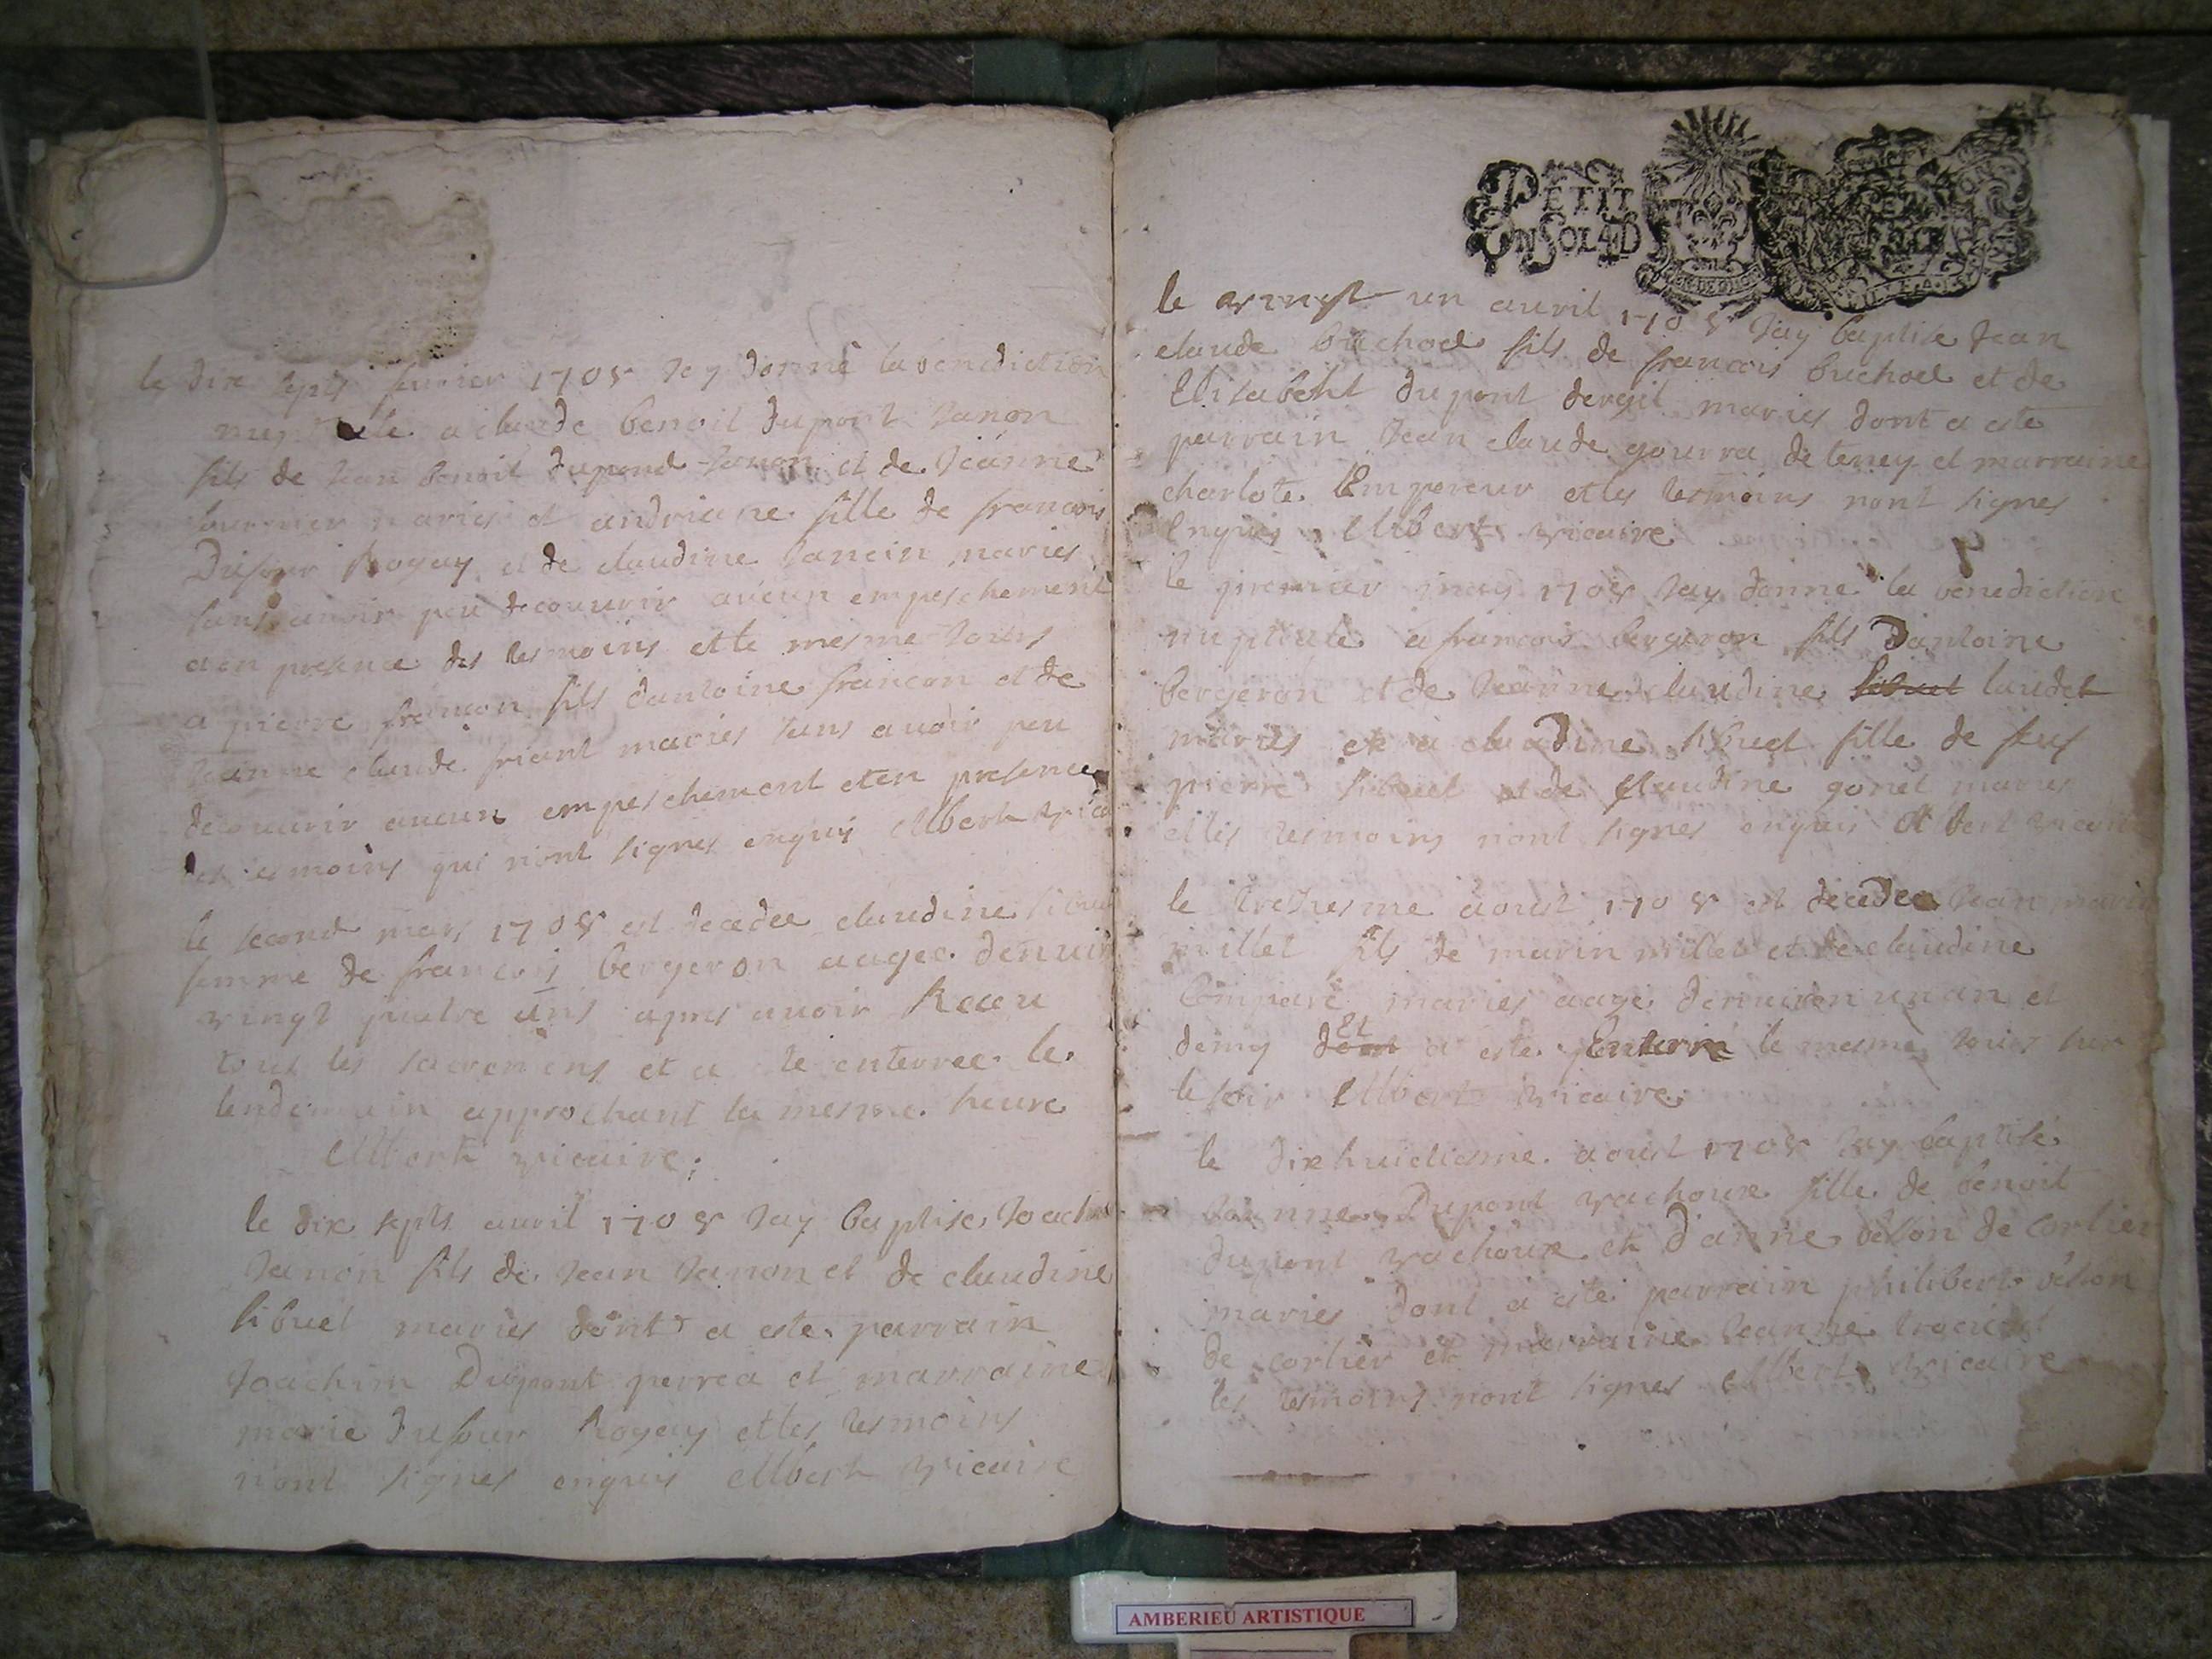 le dix sept feurier 1705 Jay donné la benediction
nuptiale a claude benoit dupont Janon
fils de Jean benoit dupond Janon et de Jeanne
fournier maries et andriane fille de francois
Dufour Rogay et de claudine Jancin maries
sans avoir peu decouurir aucun empeschement
et en presence des tesmoins et le mesme Jours
a pierre francon fils dantoine francon et de
Jeanne claude friant maries sans auoir peu
decouurir aucun empeschement et en presence
des tesmoins qui nont signes enquis Albert vica
le second mars 1705 est decedee claudine sibuet
femme de francois bergeron aagee denuir
vingt quatre ans apres auoir Receu
tout les sacremens et a este enterree le
lendemain approchant la mesme heure
Albert vicaire;
le dix sept auril 1705 Jay baptise Joach
Janon fils de Jean Janon et de claudine
sibuet maries dont a este parrain
Joachim Dupont perrea et marraine
marie dufour Rogay et les tesmoins
nont signes enquis Albert vicaire
PETIT
UN SOL 4 D
le vingt un auril 1705 Jay baptise Jean
claude buchod fils de francois buchod et de
Elisabeht dupont maries dont a este
parrain Jean claude gourra de teney et marraine
charlote Lempereur et les tesmoins nont signes
enquis Albert vicaire
le premier may 1705 Jay donne la benediction
nuptiale a francois bergeron fils Dantoine
bergeron et de Jeanne claudine sibuet laudet
maries et a claudine sibuet fille de feu
pierre sibuet et de claudine gonet maries
et les tesmoins nont signes enquis Albert vicaire
le tresiesme aoust 1705 est decedee Jean marin
millet fils de marin millet et de claudine
Compare maries aage denuiron un an et
demy dont Et a este Enterré le mesme Jours sur
le soir Albert vicaire
le dixhuictiesme aoust 1705 Jay baptise
Jeanne Dupont vachoux fille de benoit
dupont vachoux et Danne belon de corlier
maries dont a este parrain philibert belon
de corlier et marraine Jeanne
les tesmoins nont signes Albert vicaire
AMBERIEU ARTISTIQUE